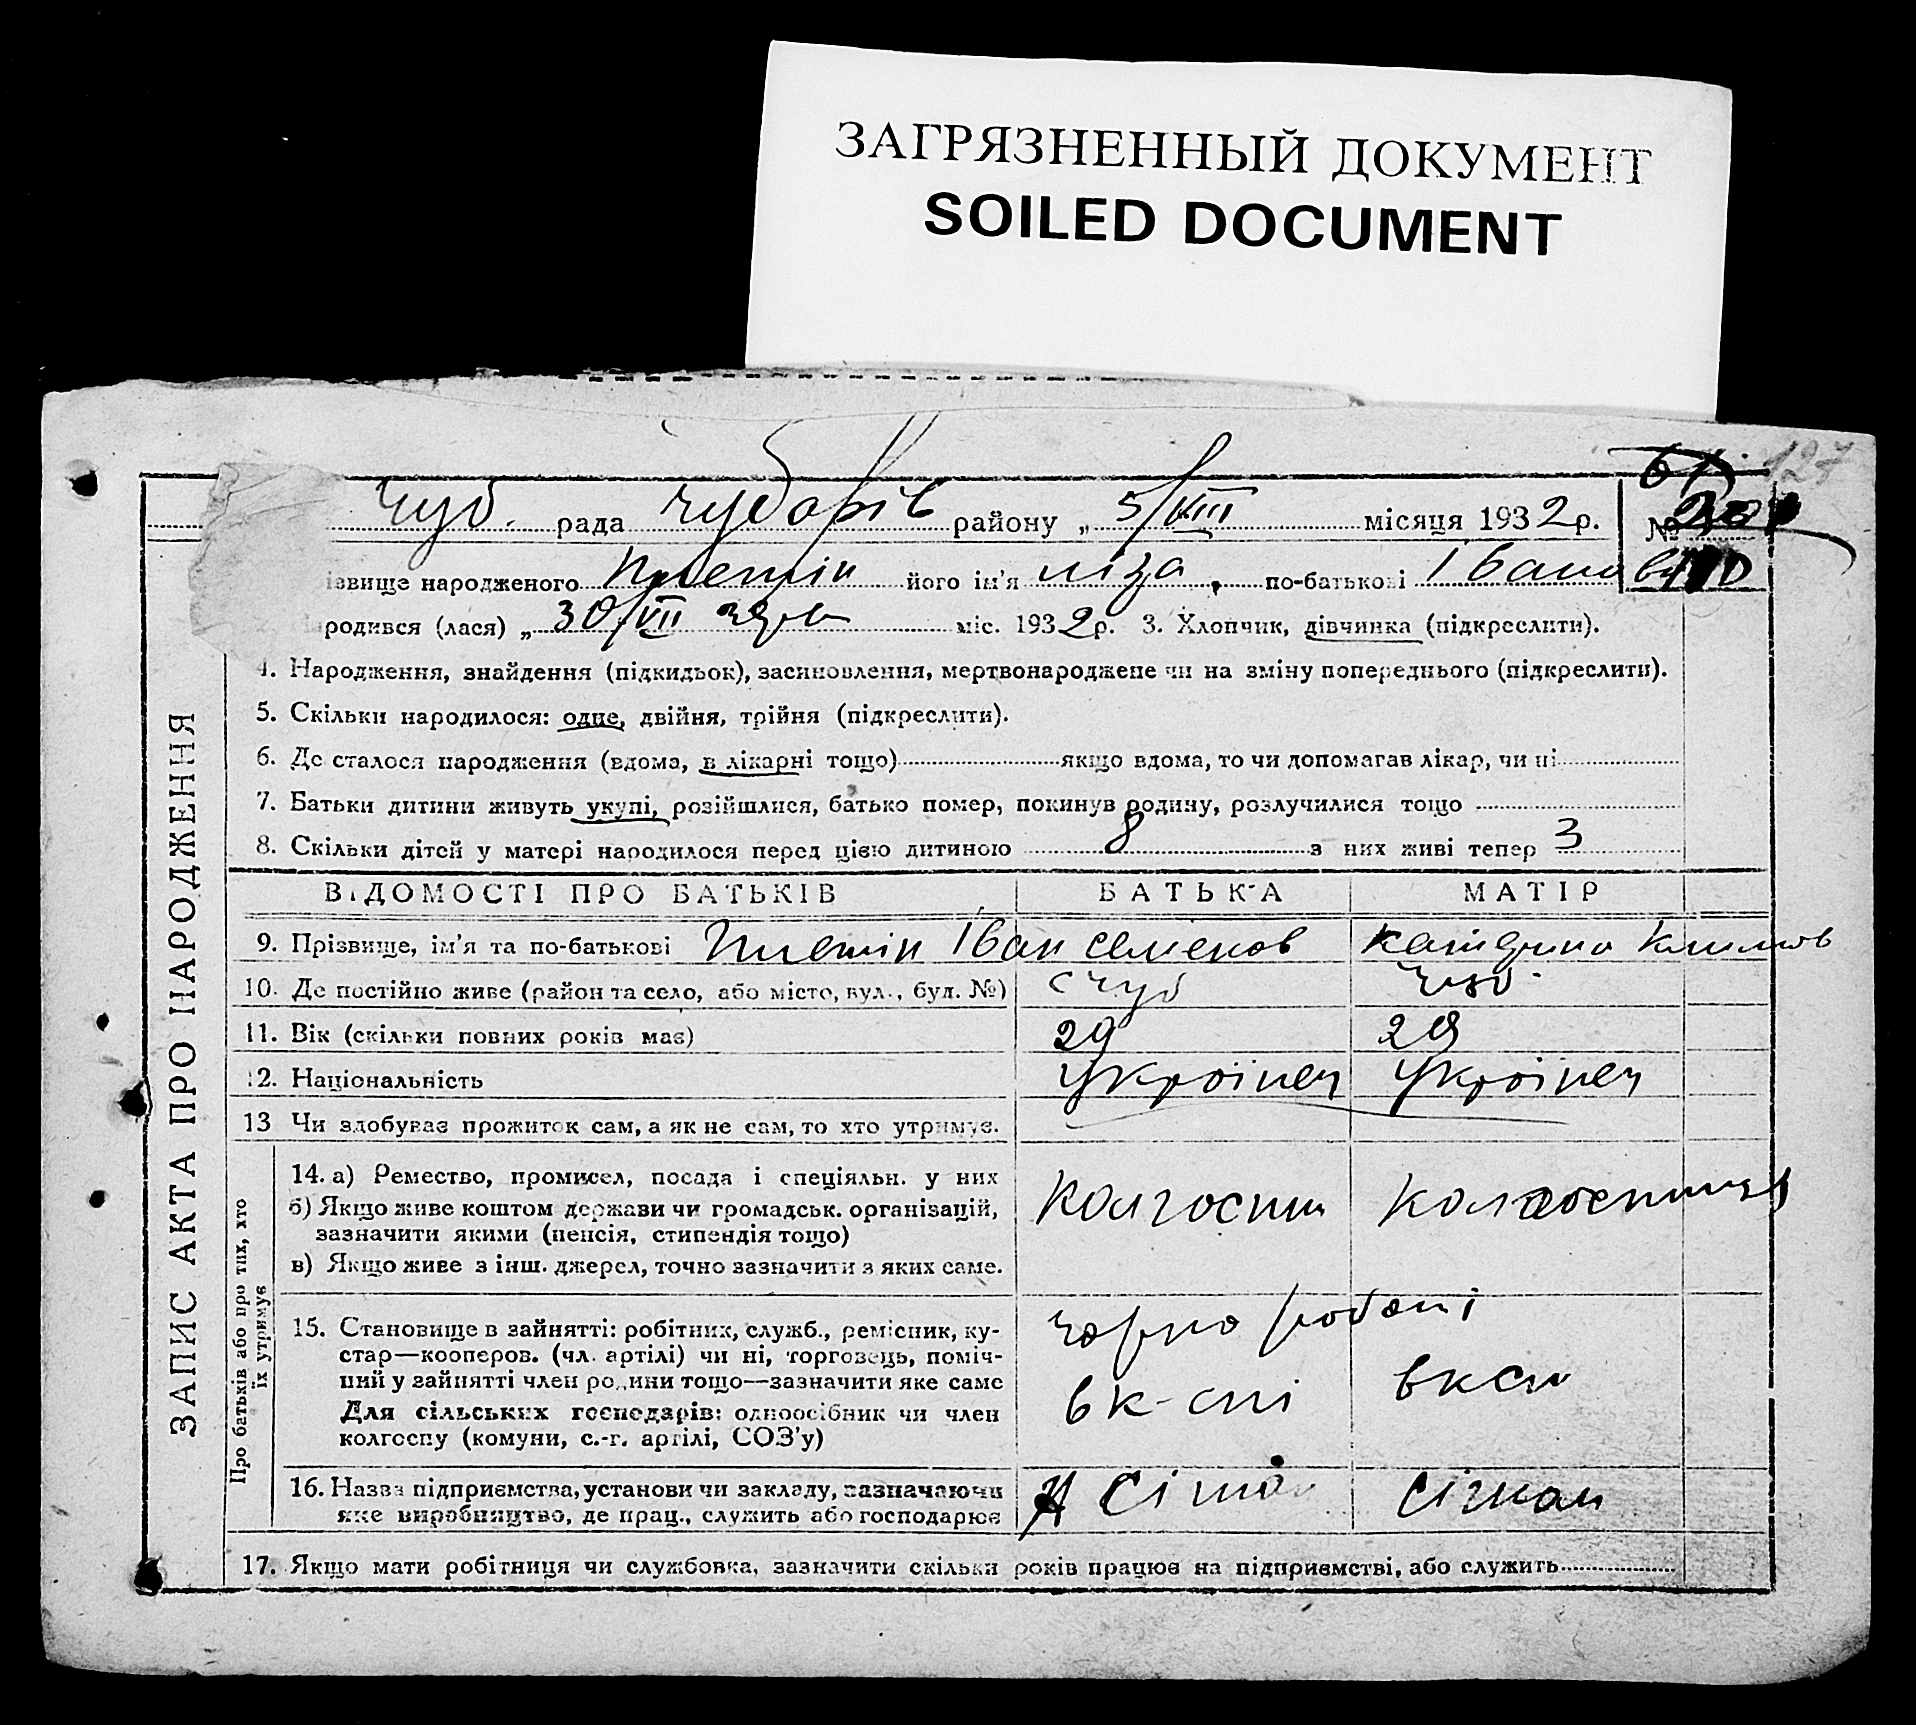 ЗАГРЯЗНЕННЫЙ ДОКУМЕНТ
SOILED DOCUMENT
127
Чуб. рада Чубарів району „ 5/VIII місяця 1932 р. №
ізвище народженого його ім'я Ліза, по-батькові Іванов
родився (лася) „ 30/VII міс. 1932 р. 3. Хлопчик, дівчинка (підкреслити).
4. Народження, знайдення (підкидьок), засиновлення, мертвонароджене чи на зміну попереднього (підкреслити).
5. Скільки народилося: одне, двійня, трійня (підкреслити).
6. Де сталося народження (вдома, в лікарні тощо) якщо вдома, то чи допомагав лікар, чи ні
7. Батьки дитини живуть укупі, розійшлися, батько помер, покинув родину, розлучилися тощо
8. Скільки дітей у матері народилося перед цією дитиною 8 з них живі тепер 3
ЗАПИС АКТА ПРО НАРОДЖЕННЯ
ВІДОМОСТІ ПРО БАТЬКІВ БАТЬКА МАТІР
9. Прізвище, ім'я та по-батькові Іван Семенов Катерина Климов
10. Де постійно живе (район та село, або місто, вул., буд. №) с Чуб Чуб
11. Вік (скільки повних років має) 29 29
12. Національність Українец Українец
13 Чи здобуває прожиток сам, а як не сам, то хто утримує.
Про батьків або про тих, хто
їх утримує
14. а) Ремество, промисел, посада і спеціяльн. у них Колгоспн
б) Якщо живе коштом держави чи громадськ. організацій,
зазначити якими (пенсія, стипендія тощо)
в) Якщо живе з інш. джерел, точно зазначити з яких саме.
15. Становище в зайнятті: робітник, служб., ремісник, ку-
стар—кооперов. (чл. артілі) чи ні, торговець, поміч-
ний у зайнятті член родини тощо—зазначити яке саме
Для сільських господарів: одноосібник чи член
колгоспу (комуни, с.-г. артілі, СОЗ'у)
чорно робочі
в к-спі
16. Назва підприємства, установи чи закладу, зазначаючи
яке виробництво, де прац., служить або господарює
17. Якщо мати робітниця чи службовка, зазначити скільки років працює на підприємстві, або служить